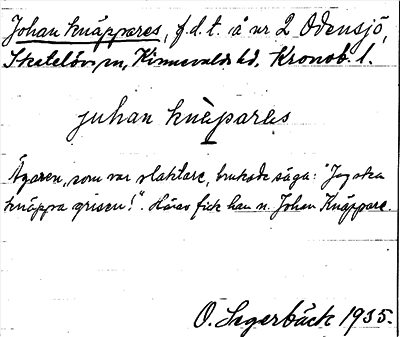 Johan Knäppares, f.d.t. å nr 2 Odensjö,
Skatelövs sn, Kinnevalds hd, Kronob. l.
juhan knèparəs
Ägaren, som var slaktare, brukade säga: "Jag ska
knäppa grisen!". Härav fick han n. Johan Knäppare.
O. Lagerbäck 1935.